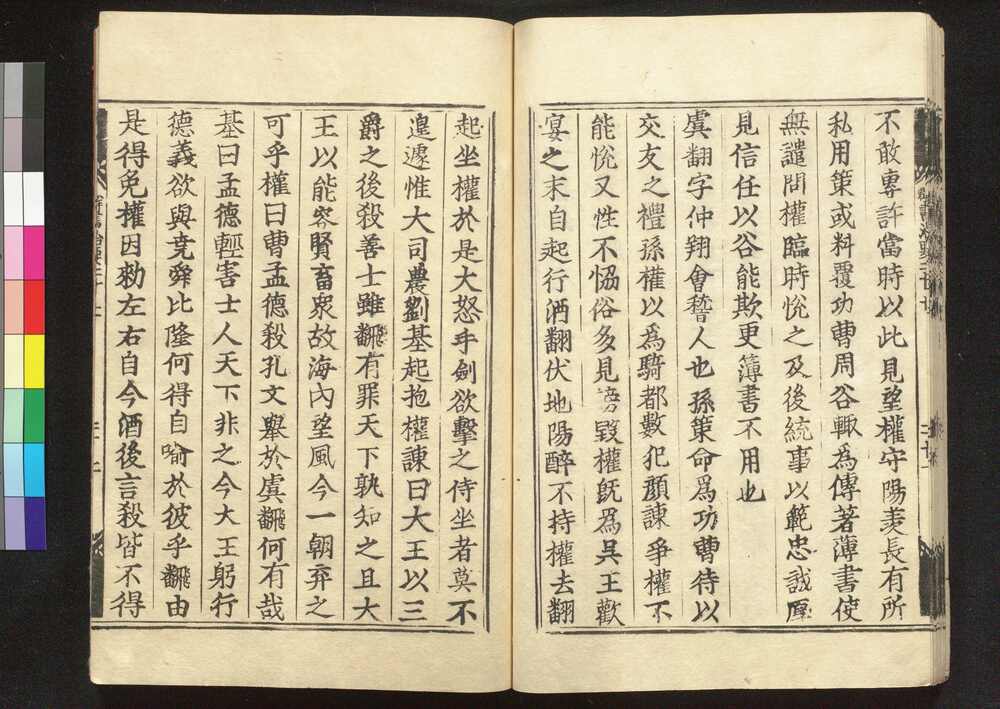 不敢專許當時以此見望權守陽羨長有所
私用策或料覆功曹周谷輒為傅著薄書使
無譴問權臨時悅之及後統事以範忠誠厚
見信任以谷能欺更簿書不用也
虞翻字仲翔會稽人也孫策命爲功曹待以
交友之禮孫權以爲騎都數犯顏諫爭權不
能悅又性不恊俗多見謗毀權旣爲吳王歡
宴之末自起行酒翻伏地陽醉不持權去翻
起坐權於是大怒手劍欲擊之侍坐者莫不
遑遽惟大司農劉基起抱權諫曰大王以三
爵之後殺善士雖翻有罪天下孰知之且大
王以能容賢畜衆故海內望風今一朝弃之
可乎權曰曹孟德殺孔文舉於虞翻何有哉
基曰孟德輕害士人天下非之今大王躬行
德義欲與堯舜比隆何得自喻於彼乎翻由
是得免權因勑左右自今酒後言殺皆不得